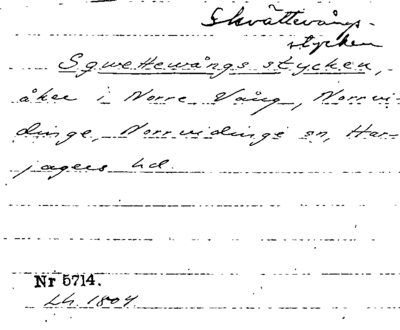 Skvättevångs-
stycken
Sqwettewångs stycken,
åker i Norre Vång, Norrvi-
dinge, Norrvidinge sn, Har-
jagers hd.
Nr 5714.
Lh. 1804